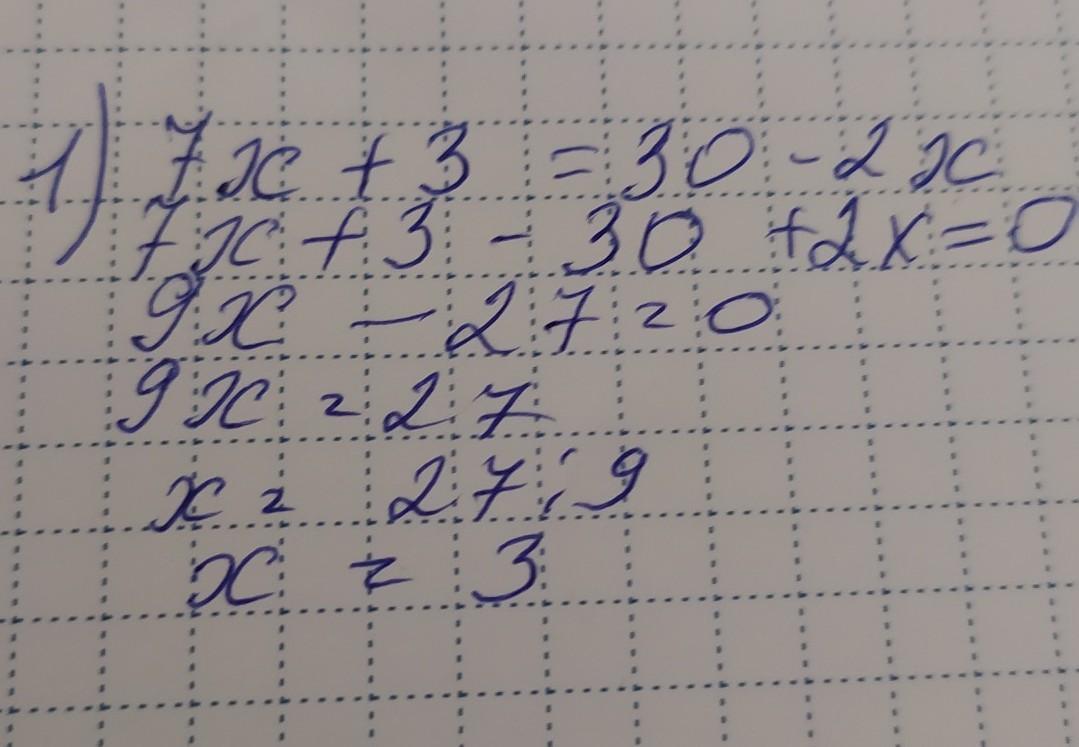 1) 7x + 3 = 30 - 2x
7x + 3 - 30 + 2x = 0
9x - 27 = 0
9x = 27
x = 27 : 9
x = 3